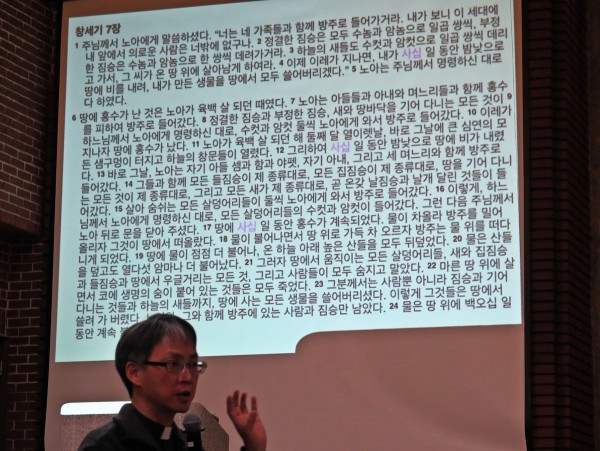 창세기 7장
1 주님께서 노아에게 말씀하셨다. “너는 네 가족들과 함께 방주로 들어가거라. 내가 보니 이 세대에
내 앞에서 의로운 사람은 너밖에 없구나. 2 정결한 짐승은 모두 수놈과 암놈으로 일곱 쌍씩, 부정
한 짐승은 수놈과 암놈으로 한 쌍씩 데려가거라. 3 하늘의 새들도 수컷과 암컷으로 일곱 쌍씩 데리
고 가서, 그 씨가 온 땅 위에 살아남게 하여라. 4 이제 이레가 지나면, 내가 사십 일 동안 밤낮으로
땅에 비를 내려, 내가 만든 생물을 땅에서 모두 쓸어버리겠다.” 5 노아는 주님께서 명령하신 대로
다 하였다.
6 땅에 홍수가 난 것은 노아가 육백 살 되던 때였다. 7 노아는 아들들과 아내와 며느리들과 함께 홍수
를 피하여 방주로 들어갔다. 8 정결한 짐승과 부정한 짐승, 새와 땅바닥을 기어 다니는 모든 것이 9
하느님께서 노아에게 명령하신 대로, 수컷과 암컷 둘씩 노아에게 와서 방주로 들어갔다. 10 이레가
지나자 땅에 홍수가 났다. 11 노아가 육백 살 되던 해 둘째 달 열이렛날, 바로 그날에 큰 심연의 모
든 샘구멍이 터지고 하늘의 창문들이 열렸다. 12 그리하여 사십 일 동안 밤낮으로 땅에 비가 내렸
다. 13 바로 그날, 노아는 자기 아들 셈과 함과 야펫, 자기 아내, 그리고 세 며느리와 함께 방주로
들어갔다. 14 그들과 함께 모든 들짐승이 제 종류대로, 모든 집짐승이 제 종류대로, 땅을 기어 다니
는 모든 것이 제 종류대로, 그리고 모든 새가 제 종류대로, 곧 온갖 날짐승과 날개 달린 것들이 들
어갔다. 15 살아 숨쉬는 모든 살덩어리들이 둘씩 노아에게 와서 방주로 들어갔다. 16 이렇게, 하느
님께서 노아에게 명령하신 대로, 모든 살덩어리들의 수컷과 암컷이 들어갔다. 그런 다음 주님께서
노아 뒤로 문을 닫아 주셨다. 17 땅에 사십 일 동안 홍수가 계속되었다. 물이 차올라 방주를 밀어
올리자 그것이 땅에서 떠올랐다. 18 물이 불어나면서 땅 위로 가득 차 오르자 방주는 물 위를 떠다
니게 되었다. 19 땅에 물이 점점 더 불어나, 온 하늘 아래 높은 산들을 모두 뒤덮었다. 20 물은 산들
을 덮고도 열다섯 암마나 더 불어났다. 21 그러자 땅에서 움직이는 모든 살덩어리들, 새와 집짐승
과 들짐승과 땅에서 우글거리는 모든 것, 그리고 사람들이 모두 숨지고 말았다. 22 마른 땅 위에 살
면서 코에 생명의 숨이 붙어 있는 것들은 모두 죽었다. 23 그분께서는 사람뿐 아니라 짐승과 기어
다니는 것들과 하늘의 새들까지, 땅에 사는 모든 생물을 쓸어버리셨다. 이렇게 그것들은 땅에서
쓸려 가 버렸다. 그와 함께 방주에 있는 사람과 짐승만 남았다. 24 물은 땅 위에 백오십 일
동안 계속